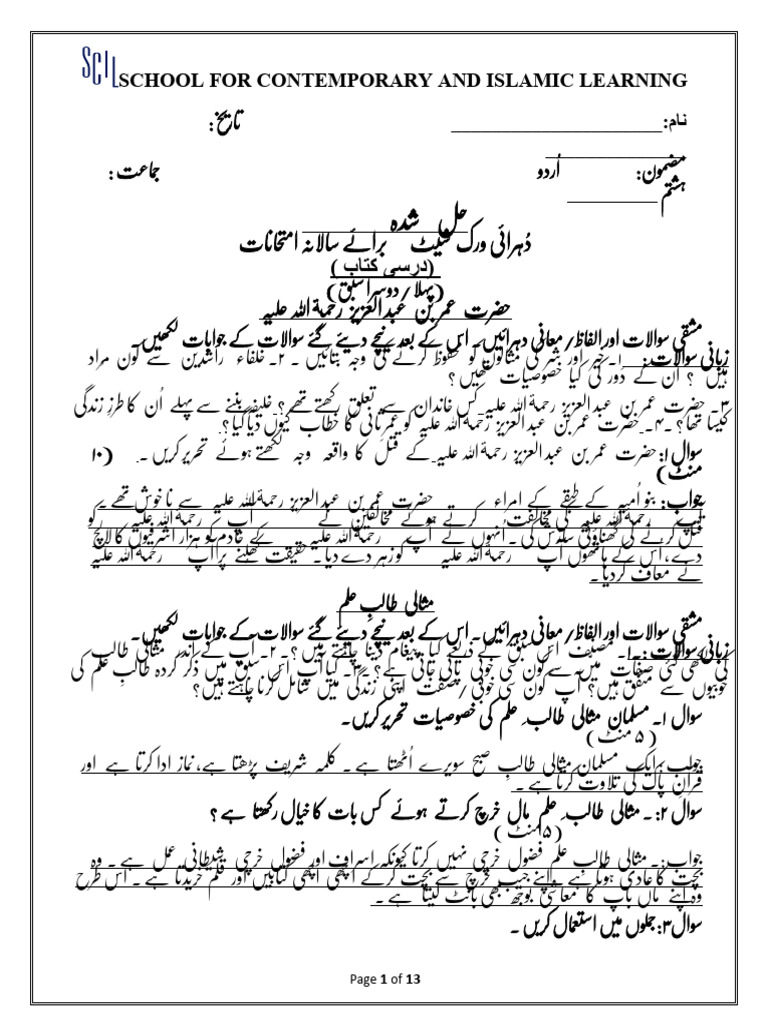 SCIL SCHOOL FOR CONTEMPORARY AND ISLAMIC LEARNING
نام: ______________________ تاریخ:
______________
مضمون: اُردو جماعت :
ہشتم __________
حل شدہ
دُہرائی ورک شیٹ برائے سالانہ امتحانات
(درسی کتاب )
(پہلا/دوسرا سبق)
حضرت عمر بن عبدالعزیز رحمة الله علیہ
مشقی سوالات اور الفاظ/معانی دہرائیں۔ اس کے بعد نیچے دیئے گئے سوالات کے جوابات لکھیں۔
زبانی سوالات: ۱۔ خیر اور شر کی مثالوں کو محفوظ کرنے کی وجہ بتائیں ۔ ۲۔ خلفاء راشدین سے کون مراد
ہیں ؟ اُن کے دور کی کیا خصوصیات تھیں؟
۳۔ حضرت عمر بن عبدالعزیز رحمة الله علیہ کس خاندان سے تعلق رکھتے تھے؟ خلیفہ بننے سے پہلے اُن کا طرزِ زندگی
کیسا تھا؟۔ ۴۔ حضرت عمر بن عبدالعزیز رحمة الله علیہ کو عمرِ ثانی کا خطاب کیوں دیا گیا؟
سوال ۱: حضرت عمر بن عبدالعزیز رحمة الله علیہ کے قتل کا واقعہ وجہ لکھتے ہوئے تحریر کریں ۔ (۱۰
منٹ)
جواب: بنو اُمیہ کے طبقے کے امراء حضرت عمر بن عبدالعزیز رحمة الله علیہ سے ناخوش تھے ۔
آپ رحمة الله علیہ کی مخالفت کرتے ہوئے مخالفین نے آپ رحمة الله علیہ کو
قتل کرنے کی گھناؤنی سازش کی ۔ اُنہوں نے آپ رحمة الله علیہ کے خادم کو ہزار اشرفیوں کا لالچ
دے، اس کے ہاتھوں آپ رحمة الله علیہ کو زہر دے دیا ۔ حقیقت کھلنے پر آپ رحمة الله علیہ
نے معاف کر دیا ۔
مثالی طالبِ علم
مشقی سوالات اور الفاظ/معانی دہرائیں۔ اس کے بعد نیچے دیئے گئے سوالات کے جوابات لکھیں۔
زبانی سوالات:۔ ۱۔ مصنف اس سبق کے ذریعے کیا پیغام دینا چاہتے ہیں؟۔ ۲۔ آپ کے اندر مثالی طالب
کی لکھی گئی صفات میں سے کون سی خوبی پائی جاتی ہے؟ ۳۔ کیا آپ اس سبق میں ذکر کردہ طالبِ علم کی
خوبیوں سے متفق ہیں؟ آپ کون سی خوبی /صفت اپنی زندگی میں شامل کرنا چاہتے ہیں؟
سوال ۱۔ مسلمان مثالی طالبِ علم کی خصوصیات تحریر کریں۔
(۵ منٹ )
جواب: ایک مسلمان مثالی طالبِ صبح سویرے اُٹھتا ہے ۔ کلمہ شریف پڑھتا ہے، نماز ادا کرتا ہے اور
قرآنِ پاک کی تلاوت کرتا ہے ۔
سوال ۲: ۔ مثالی طالبِ علم مال خرچ کرتے ہوئے کس بات کا خیال رکھتا ہے ؟
(۵ منٹ )
جواب :۔ مثالی طالبِ علم فضول خرچی نہیں کرتا کیونکہ اسراف اور فضول خرچی شیطانی عمل ہے ۔ وہ
بچت کا عادی ہوتا ہے ۔ اپنے جیب خرچ سے بچت کرکے اچھی اچھی کتابیں اور قلم خریدتا ہے ۔ اس طرح
وہ اپنے ماں باپ کا معاشی بوجھ بھی بانٹ لیتا ہے ۔
سوال ۳: جملوں میں استعمال کریں ۔
Page 1 of 13